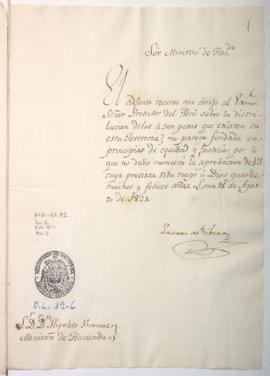 1
Sōr Ministro de Hacda
El adjunto recurso que dirijo al Exmo
Señor Protector del Perú sobre la distri-
bucion de los 4,300 pesos que existen en
esta Tesorería, me parece fundado en
principios de equidad y justicia; por lo
que no dudo merecerá la aprobacion de
cuya preciosa vida ruego à Dios guarde
muchos y felices años. Lima 18 de Agos-
to de 1821
O.L. 12-6
S.r D.n Hipolito Unanue
Ministro de Hacienda